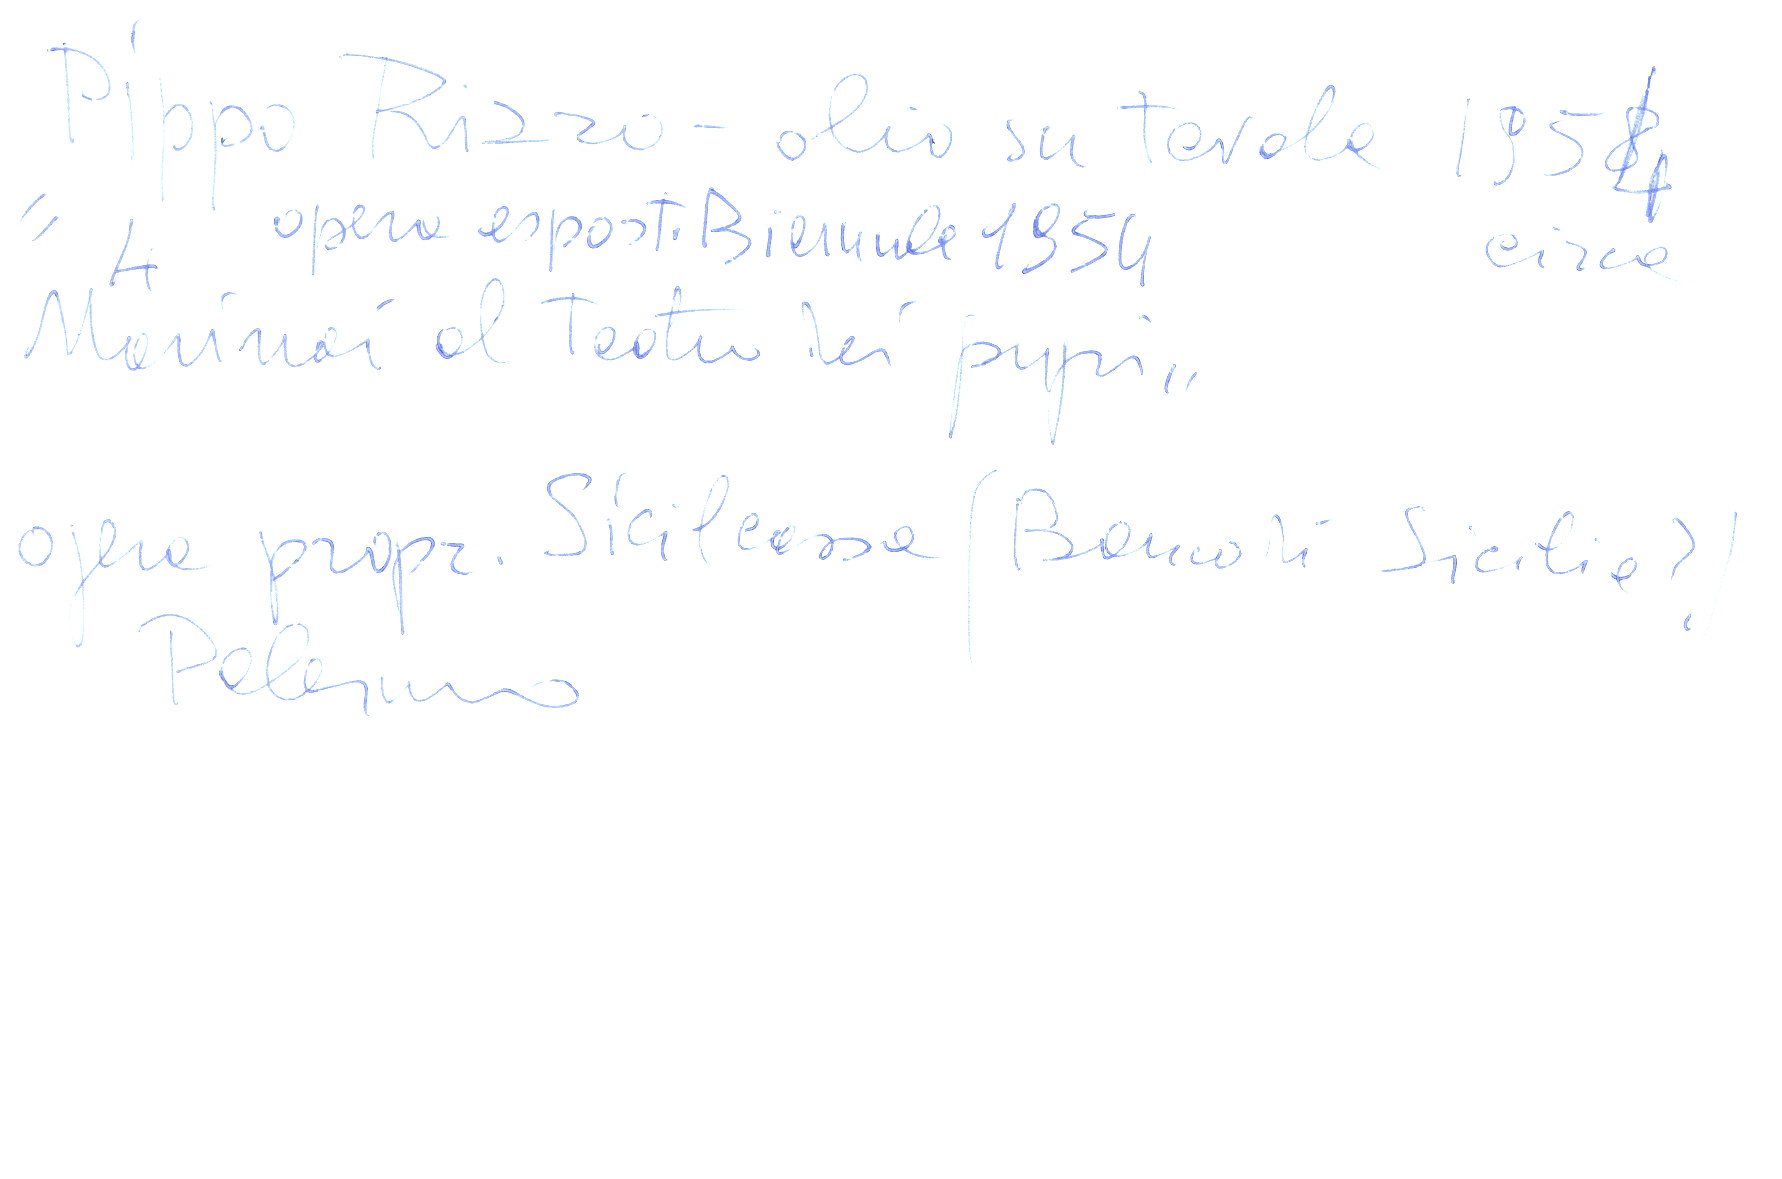 Pippo Rizzo - olio su tavola 1954
circa
opera espost. Biennale 1954
" 4
Marinai al Teatro dei pupi „
opera propr. Sicilcassa (Banco di Sicilia?)
Palermo